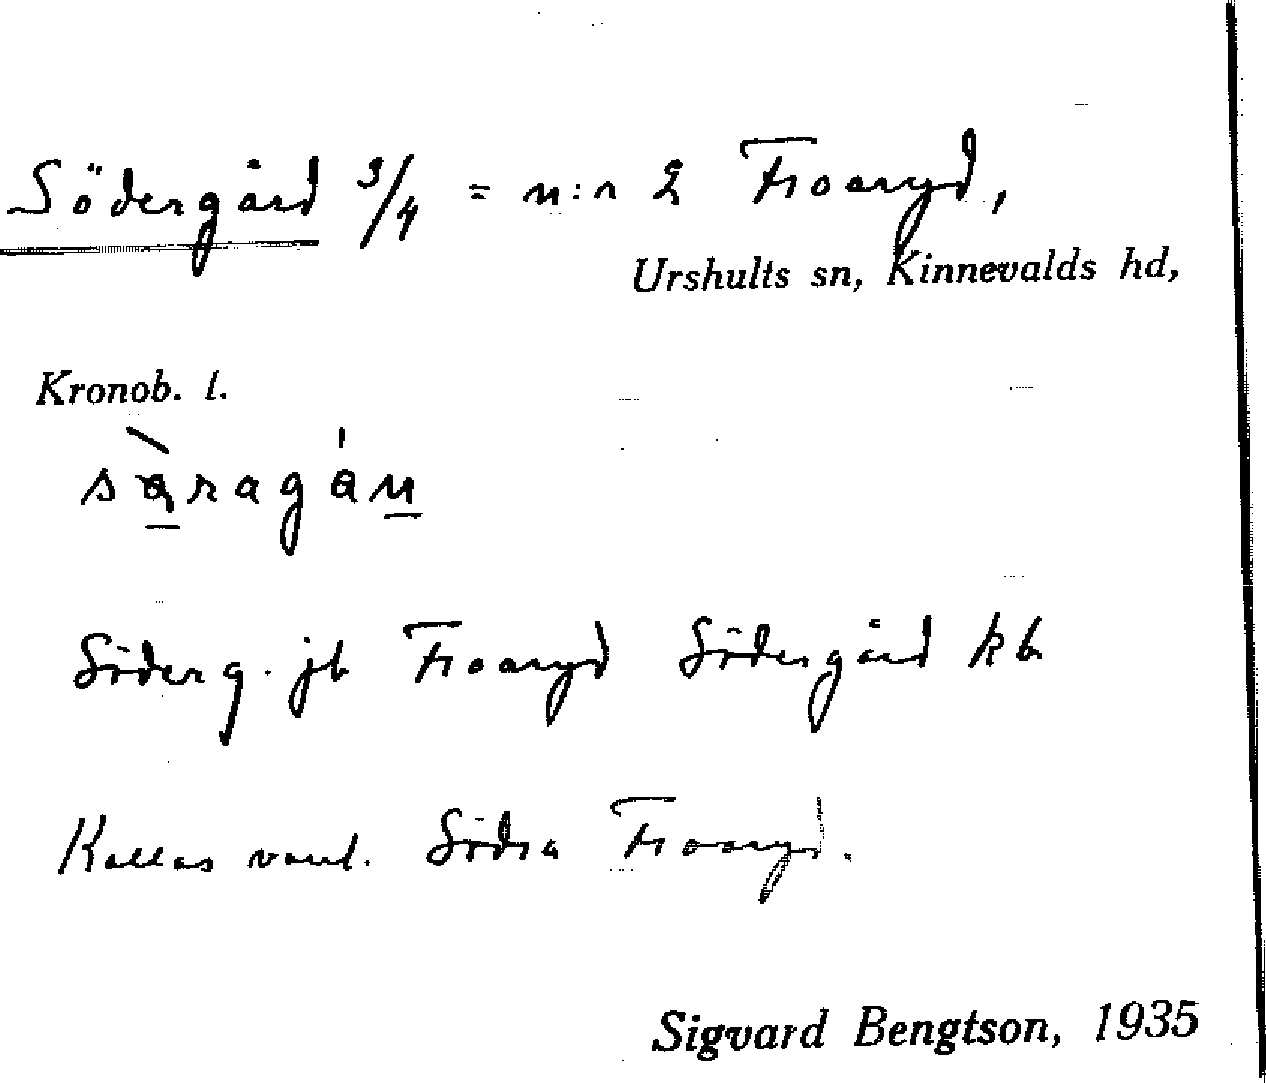 Södergård 3/4 = n:r 2 Froaryd,
Urshults sn, Kinnevalds hd,
Kronob. l.
sàragån
Söderg. jb Froaryd Södergård kb
Kallas vanl. Södra Froaryd.
Sigvard Bengtson, 1935